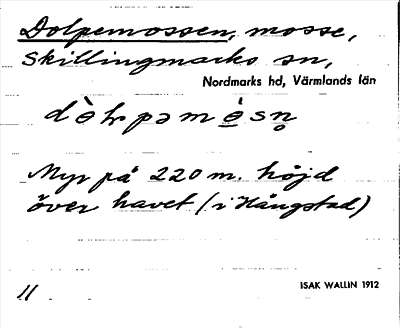 Dolpemossen, mosse,
Skillingmarks sn,
Nordmarks hd, Värmlands län
Myr på 220 m. höjd
över havet (i Hängstad)
11
ISAK WALLIN 1912